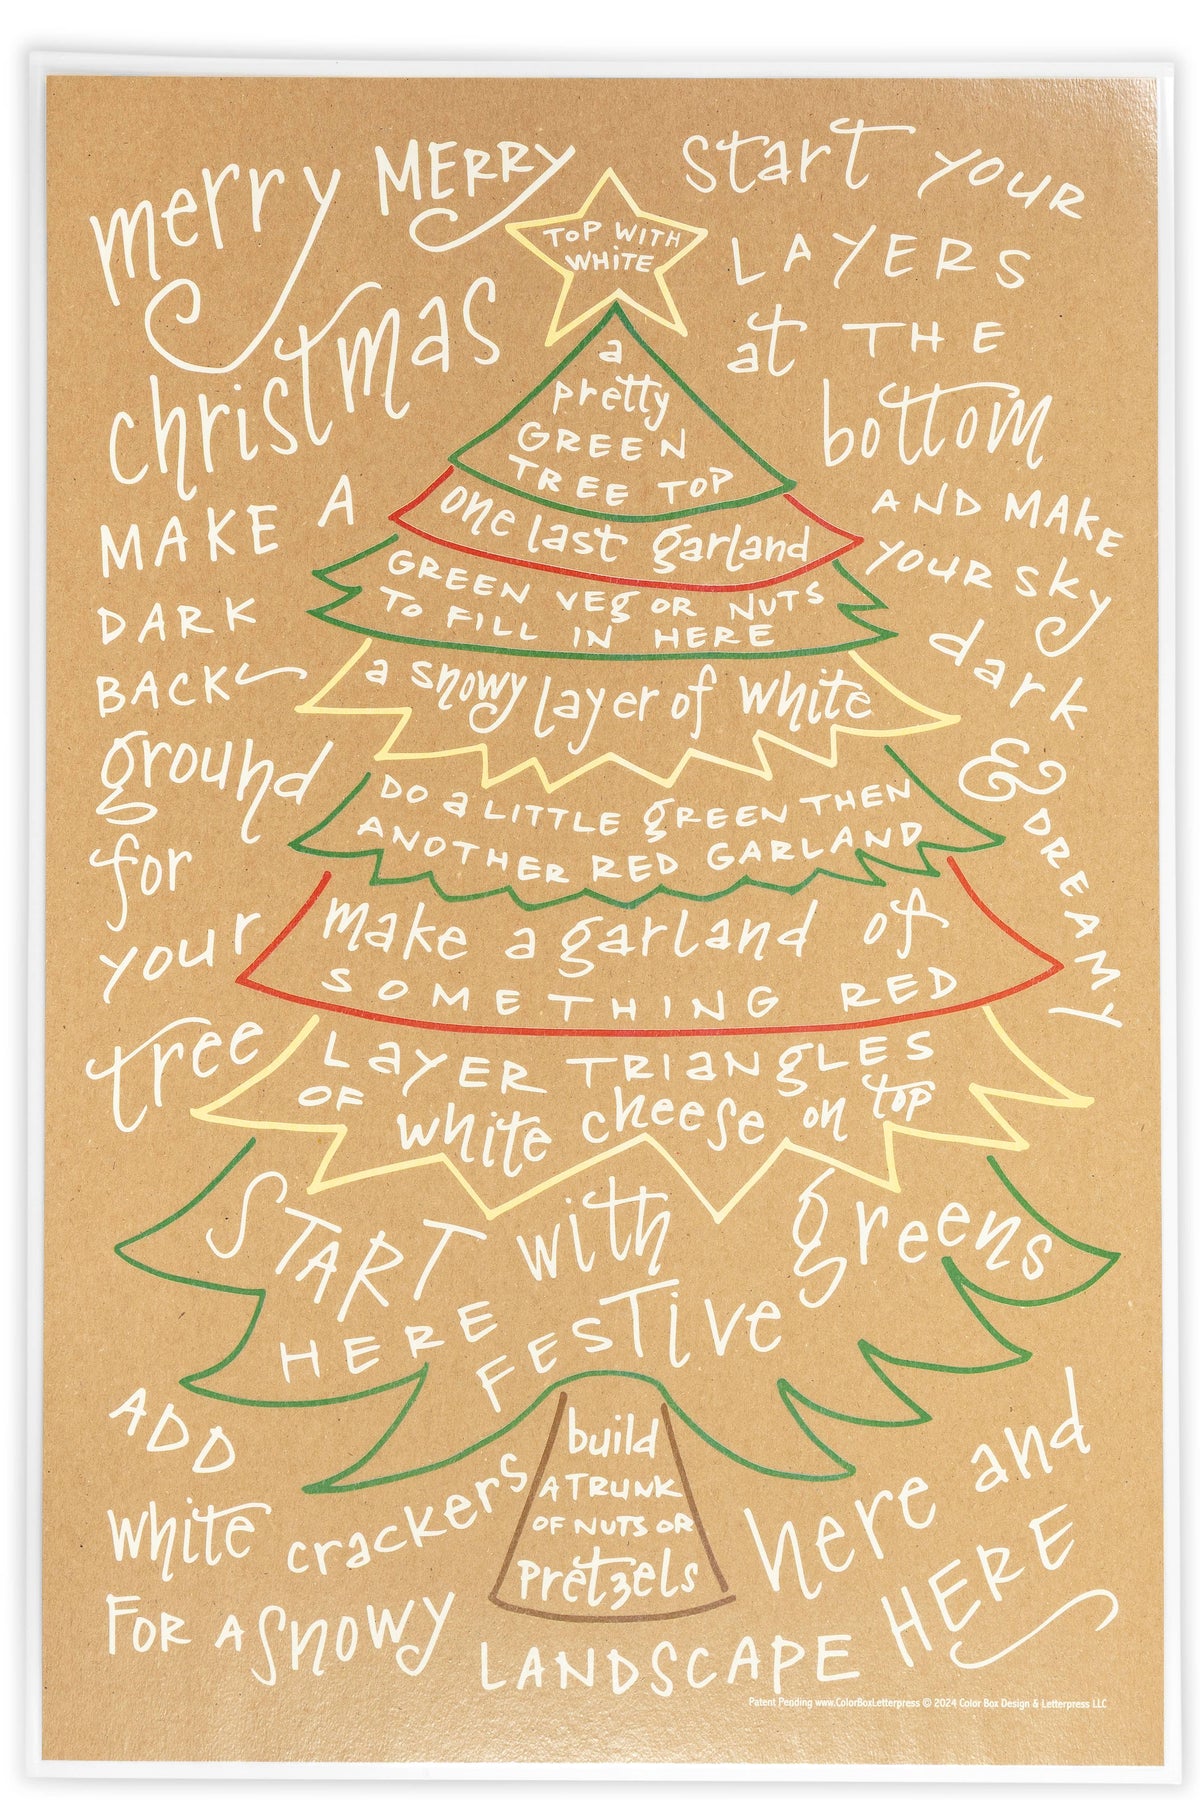 merry MERRY
christmas
MAKE A
DARK
BACK
ground
for
your
tree
start your
LAYERS
at THE
bottom
AND MAKE
your sky
dark
&
DREAMY
TOP WITH
WHITE
a
pretty
GREEN
TREE TOP
one last garland
GREEN VEG OR NUTS
TO FILL IN HERE
a snowy layer of white
DO a LITTLE GREEN THEN
ANOTHER RED GARLAND
make a garland of
SOMETHING RED
LAYER TRIANGLES
OF white cheese on top
START with greens
HERE FESTIVE
build
A TRUNK
OF NUTS OR
pretzels
ADD
white crackers
FOR A snowy
LANDSCAPE
here and
HERE
Patent Pending www.ColorBoxLetterpress © 2024 Color Box Design & Letterpress LLC